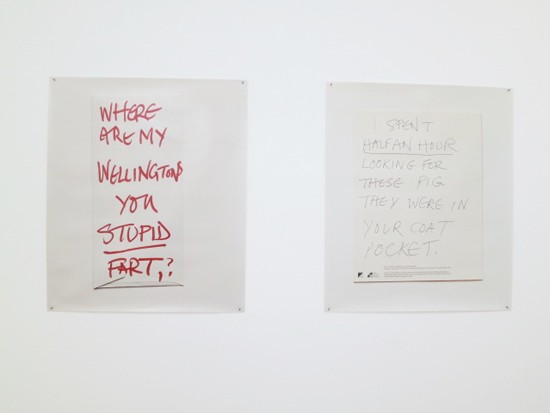 WHERE
ARE MY
WELLINGTONS
YOU
STUPID
FART,?
I SPENT
HALF AN HOUR
LOOKING FOR
THESE PIG
THEY WERE IN
YOUR COAT
POCKET.